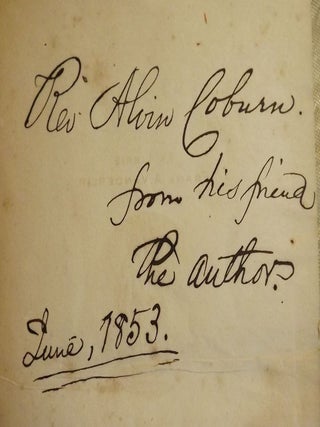 Rev Alvin Coburn.
from his friend
The author.
June, 1853.